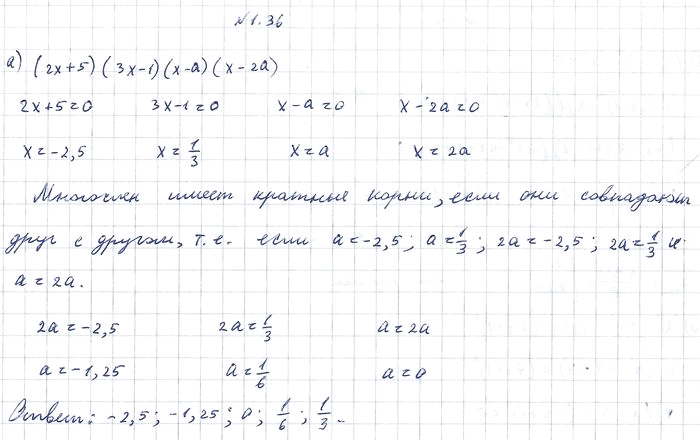 №1.36
а) (2x+5)(3x-1)(x-a)(x-2a)
2x+5=0 3x-1=0 x-a=0 x-2a=0
x=-2,5 x=1/3 x=a x=2a
Многочлен имеет кратные корни, если они совпадают
друг с другом, т.е. если a=-2,5; a=1/3; 2a=-2,5; 2a=1/3 и
a=2a.
2a=-2,5 2a=1/3 a=2a
a=-1,25 a=1/6 a=0
Ответ: -2,5; -1,25; 0; 1/6; 1/3.